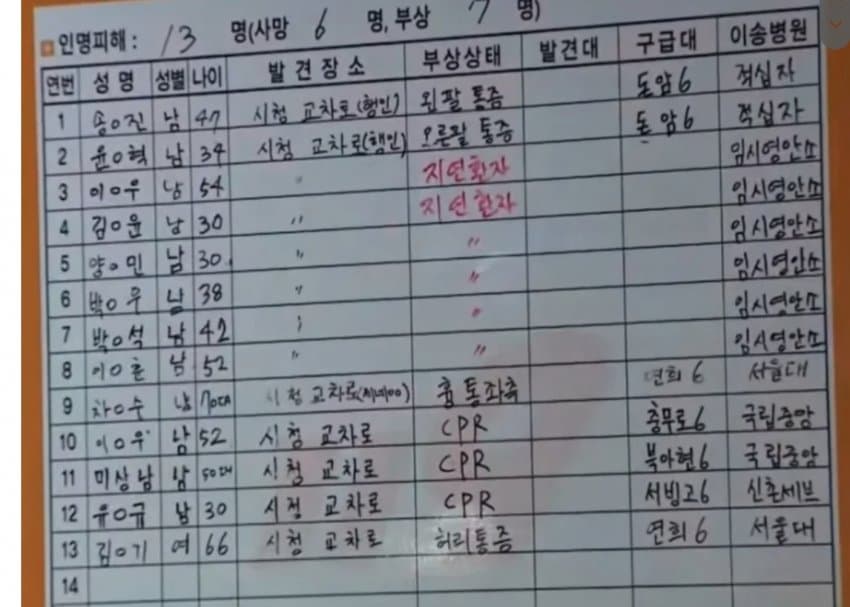 인명피해 : 13 명(사망 6 명, 부상 7 명)
연번 성명 성별 나이 발견장소 부상상태 발견대 구급대 이송병원
1 송○진 남 47 시청 교차로(행인) 왼팔 통증 돈암6 적십자
2 윤○혁 남 34 시청 교차로(행인) 오른팔 통증 돈암6 적십자
3 이○우 남 54 " 지연환자 임시영안소
4 김○윤 남 30 " 지연환자 임시영안소
5 양○민 남 30 " " 임시영안소
6 박○우 남 38 " " 임시영안소
7 박○석 남 42 " " 임시영안소
8 이○훈 남 52 " " 임시영안소
9 차○수 남 70대 시청 교차로 흉통좌측 연희6 서울대
10 이○우 남 52 시청 교차로 CPR 충무로6 국립중앙
11 미상남 남 50대 시청 교차로 CPR 북아현6 국립중앙
12 유○규 남 30 시청 교차로 CPR 서빙고6 신촌세브
13 김○기 여 66 시청 교차로 허리통증 연희6 서울대
14